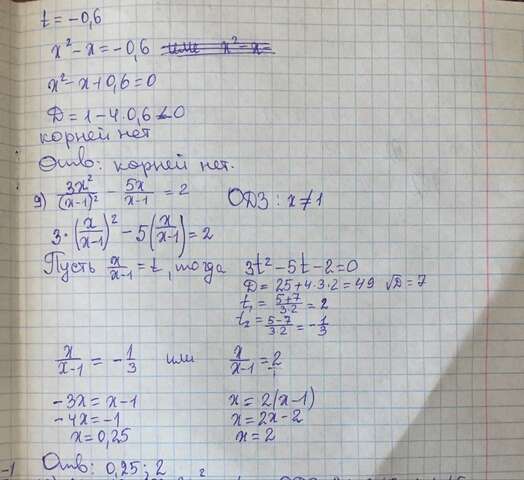 t = -0,6
x² - x = -0,6
x² - x + 0,6 = 0
D = 1 - 4·0,6 < 0
корней нет
Отв: корней нет.
9) 3x²/(x-1)² - 5x/(x-1) = 2 ОДЗ: x ≠ 1
3·(x/(x-1))² - 5(x/(x-1)) = 2
Пусть x/(x-1) = t, тогда 3t² - 5t - 2 = 0
D = 25 + 4·3·2 = 49 √D = 7
t₁ = (5+7)/(3·2) = 2
t₂ = (5-7)/(3·2) = -1/3
x/(x-1) = -1/3 или x/(x-1) = 2/1
-3x = x - 1 x = 2(x-1)
-4x = -1 x = 2x - 2
x = 0,25 x = 2
Отв: 0,25; 2